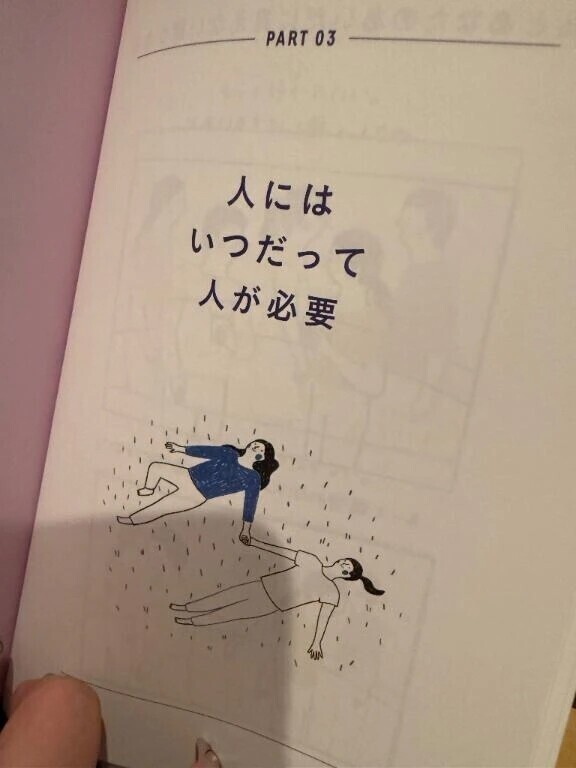 PART 03
人には
いつだって
人が必要